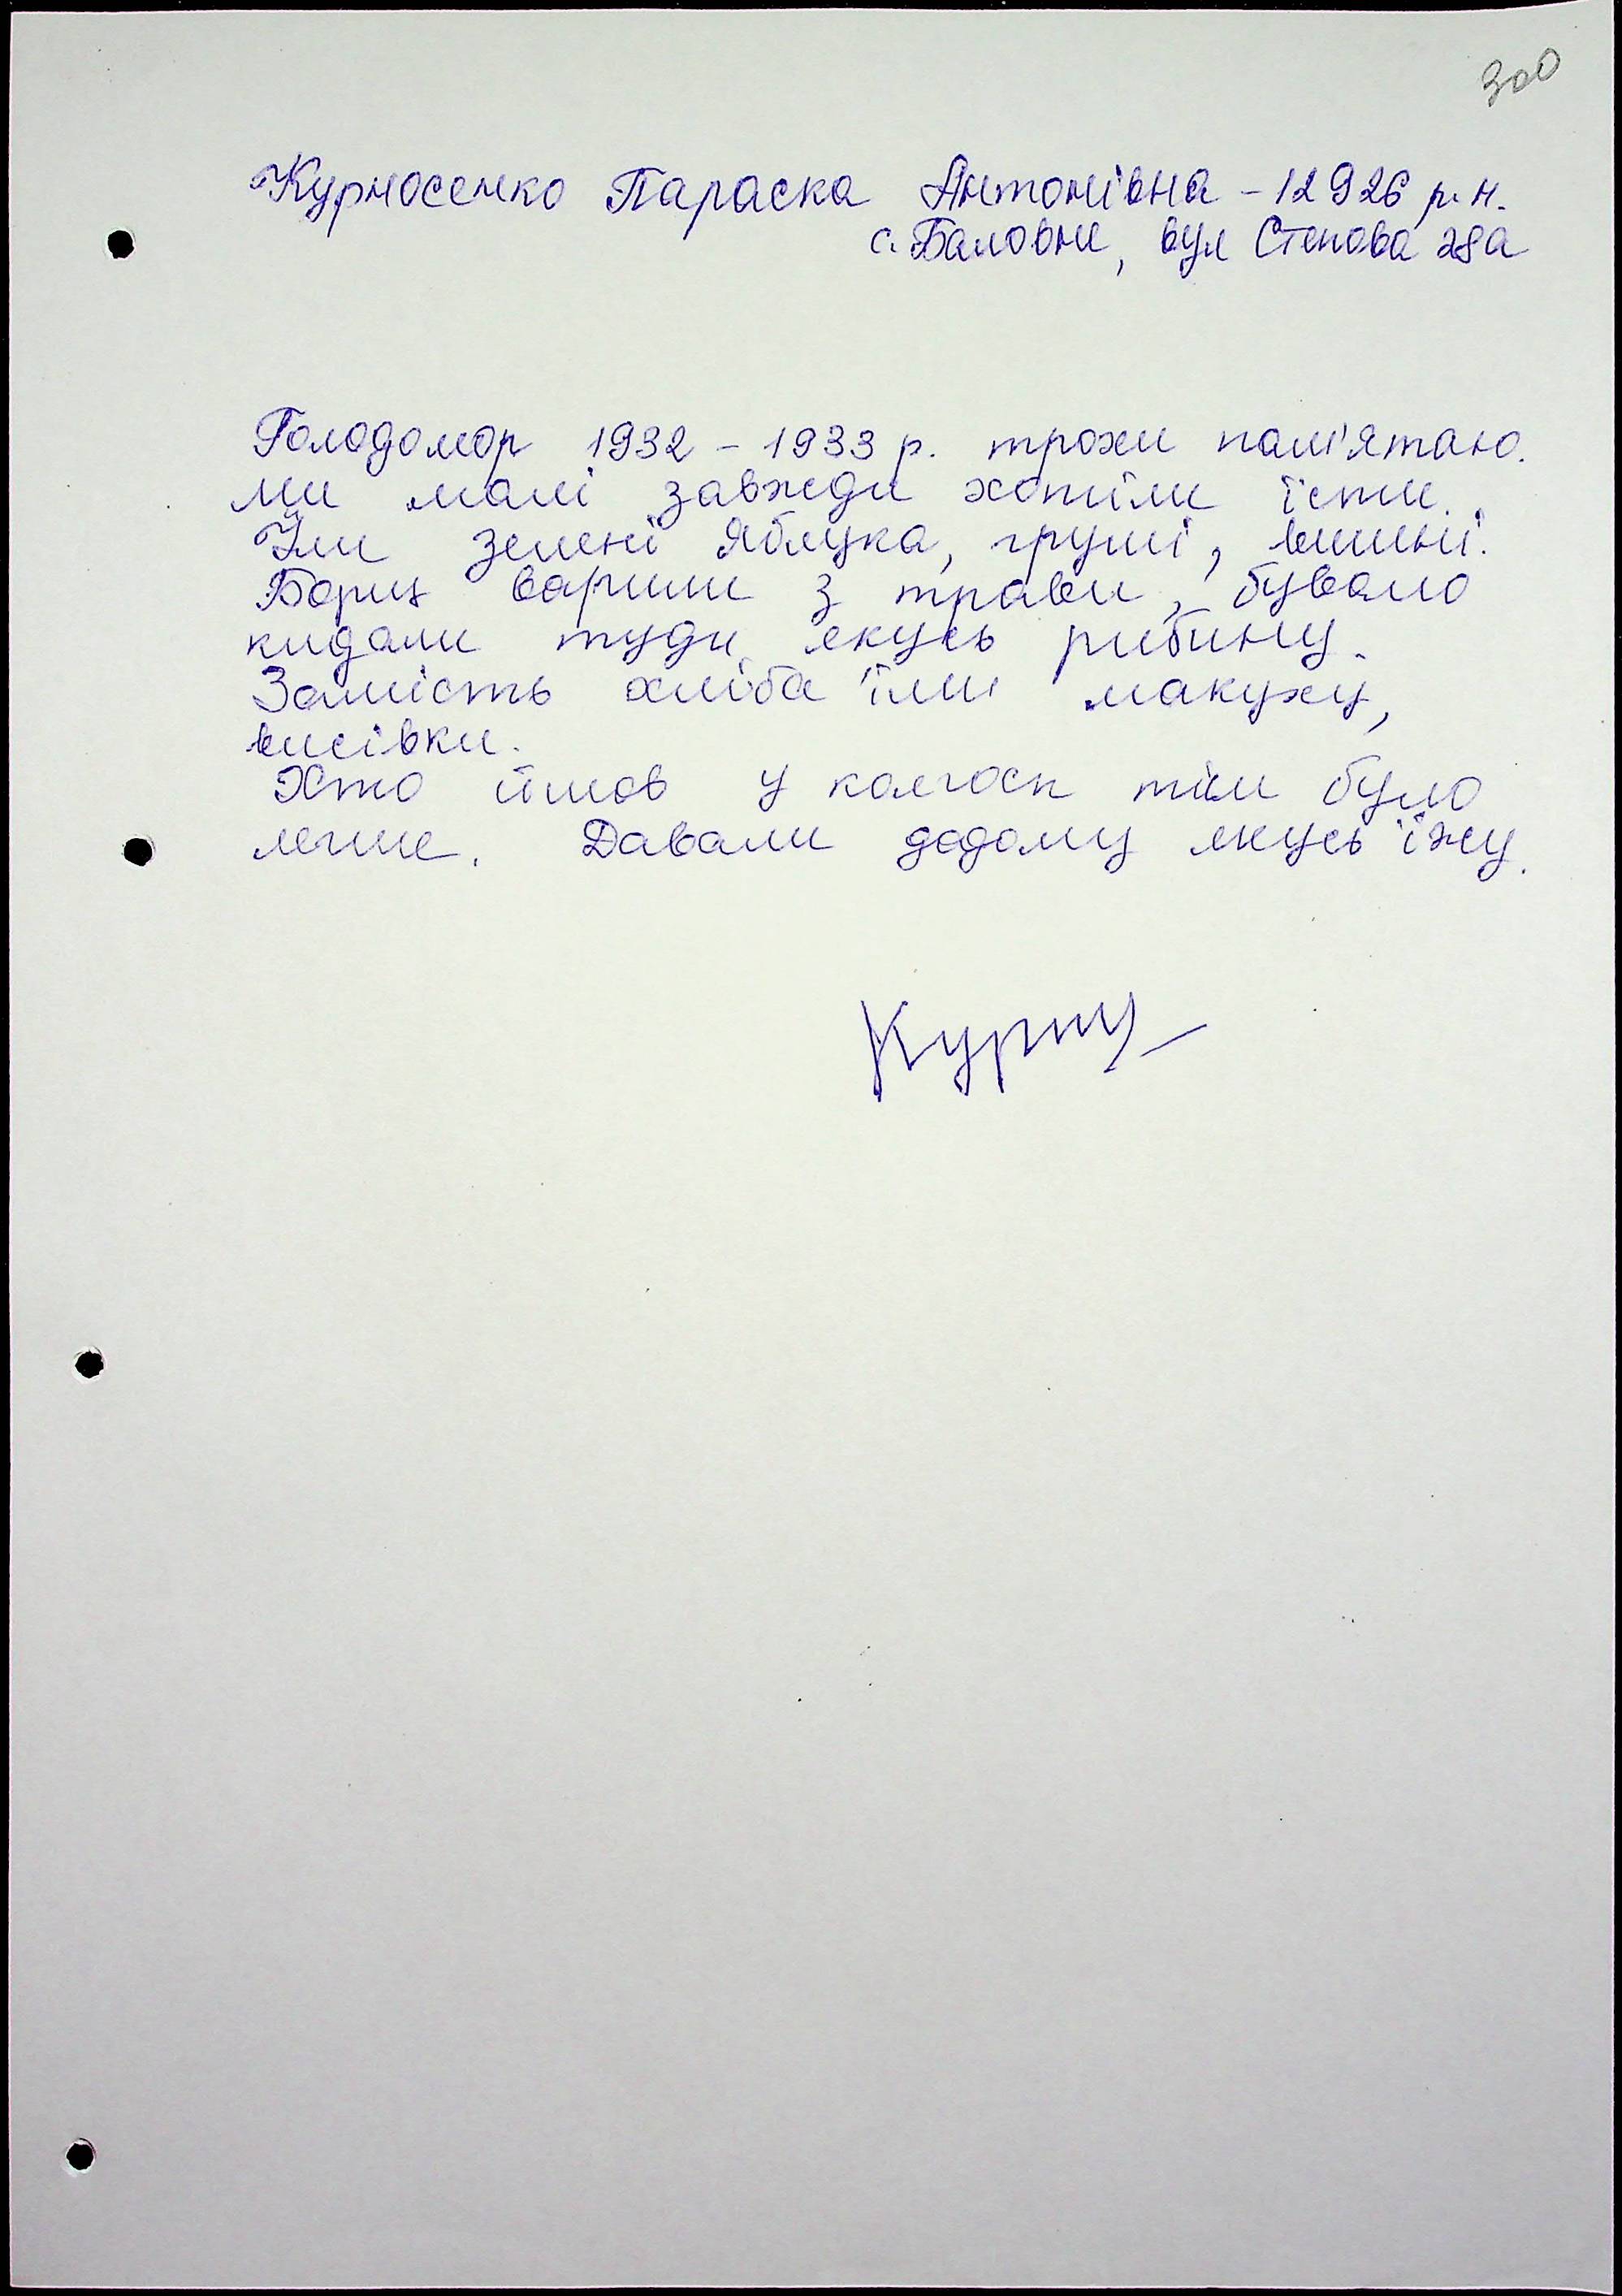 300
Курносенко Параска Антонівна - 12926 р.н.
с. Баловне, вул Степова 28а
Голодомор 1932 - 1933 р. трохи пам'ятаю.
Ми малі завжди хотіли їсти.
Їли зелені яблука, груші, вишні.
Борщ варили з трави, бувало
кидали туди якусь рибину.
Замість хліба їли макуху,
висівки.
Хто йшов у колгосп тим було
легше. Давали додому якусь їжу.